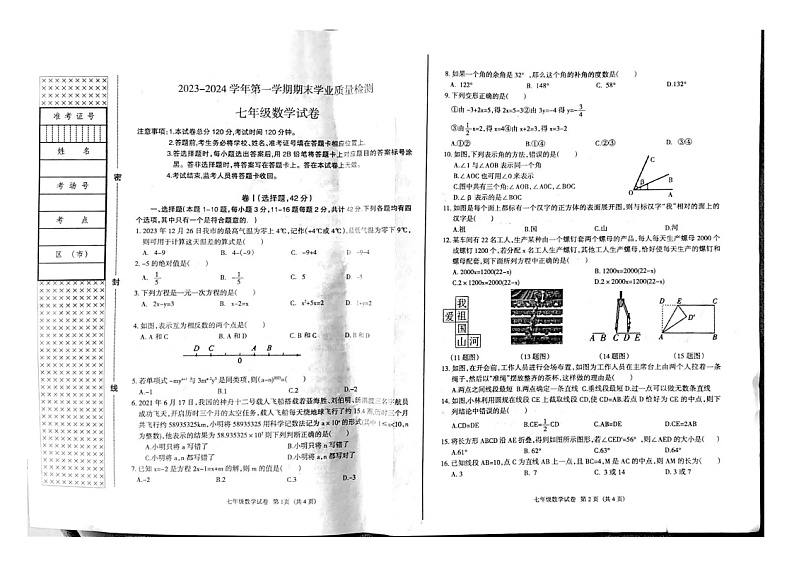 准考证号
姓 名
考场号
考 点
区（市）
密
封
线
2023-2024 学年第一学期期末学业质量检测
七年级数学试卷
注意事项:1.本试卷总分 120 分,考试时间 120 分钟。
2.答题前,考生务必将学校、姓名、准考证号填在答题卡相应位置上.
3.答选择题时,每小题选出答案后,用 2B 铅笔将答题卡上对应题目的答案标号涂
黑。答非选择题时,将答案写在答题卡上。答在本试卷上无效。
4.考试结束,监考人员将答题卡收回。
卷Ⅰ(选择题,42 分)
一、选择题(本题 1~10 题,每小题 3 分,11~16 题每题 2 分,共计 42 分.下列各题均有四
个选项,其中只有一个是符合题意的. )
1. 2023 年 12 月 26 日我市的最高气温为零上 4℃,记作(+4℃或 4℃),最低气温为零下 9℃,
则可用于计算这天温差的算式是( )
A. 4-9 B. 4-(-9) C. -9+4 D. -9-4
2. -5 的绝对值是( )
A. 1/5 B. -1/5 C. 5 D. -5
3. 下列方程是一元一次方程的是( )
A. 2x-y=3 B. x-2=x C. x²+5x=2 D.
4. 如图,表示互为相反数的两个点是( )
A. A 和 C B. A 和 D C. B 和 C D. B 和 D
D C A B
0
5. 若单项式
与 3m
是同类项,则
的值是( )
A.1 B.-1 C.2 D.-2
6. 2021 年 6 月 17 日,我国的神舟十二号载人飞船搭载着聂海胜、刘伯明、汤洪波三名宇航员
成功飞天,开启历时三个月的太空任务,载人飞船每天绕地球飞行了约 15.4 圈,历时三个月
共飞行约 58935325km,小明将 58935325 用科学记数法记为 a×10ⁿ 的形式(其中 1≤a<10,n
为整数),他表示的结果为 58.935325×10⁷ 则下列判断正确的是( )
A.小明只将 a 写错了 B.小明只将 n 写错了
C.小明将 a、n 都写错了 D.小明将 a、n 都写对了
7. 已知 x=-2 是方程 2x-1=x+m 的解,则 m 的值是( )
A.-2 B.2 C.3 D.-3
七年级数学试卷 第 1 页 (共 4 页)
8. 如果一个角的余角是 32°,那么这个角的补角的度数是( )
A. 122° B. 148° C. 58° D.132°
9. 下列变形正确的是( )
①由 -3+2x=5,得 2x=5-3②由 3y=-4 得 y=-3/4
③由1/2x=2,得 x=4④由 x+2=3,得 x=3-2
A.①② B.①④ C.②③ D. ③④
10. 如图,下列表示角的方法,错误的是( )
A.∠1 与∠AOB 表示同一个角
B.∠AOC 也可用∠O 来表示
C.图中共有三个角:∠AOB,∠AOC,∠BOC
D.∠β 表示的是∠BOC
C
B
β
1
O
A
11. 如图是每个面上都标有一个汉字的正方体的表面展开图,则与标汉字"我"相对的面上的
汉字是( )
A.祖 B.国 C.山 D.河
12. 某车间有 22 名工人,生产某种由一个螺钉套两个螺母的产品,每人每天生产螺母 2000 个
或螺钉 1200 个,若分配 x 名工人生产螺钉,其他工人生产螺母,恰好使每天生产的螺钉和
螺母配套,则下面所列方程中正确的是( )
A. 2000x=1200(22-x) B. 1200x=2000(22-x)
C.2×1200x=2000(22-x) D.2×2000x=1200(22-x)
我
爱 祖
国
山 河
A B C D E
D E C
D′
A B
(11 题图) (13 题图) (14 题图) (15 题图)
13. 如图,在开会前,工作人员进行会场布置,如图为工作人员在主席台上由两个人拉着一条
绳子,然后以"准绳"摆放整齐的茶杯,这样做的理由是( )
A.两点之间线段最短 B.两点确定一条直线 C.垂线段最短 D.过一点可以做无数条直线
14. 如图,小林利用圆规在线段 CE 上截取线段 CD,使 CD=AB.若点 D 恰好为 CE 的中点,则下
列结论中错误的是( )
A.CD=DE B.CE=1/2CD C.AB=DE D.CE=2AB
15. 将长方形 ABCD 沿 AE 折叠,得到如图所示图形,若∠CED′=56°,则∠AED 的大小是( )
A.61° B. 62° C.63° D.64°
16. 已知线段 AB=10,点 C 为直线 AB 上一点,且 BC=4,M 是 AC 的中点,则 AM 的长为( )
A. 3 B. 7 C. 3 或 14 D. 3 或 7
七年级数学试卷 第 2 页 (共 4 页)